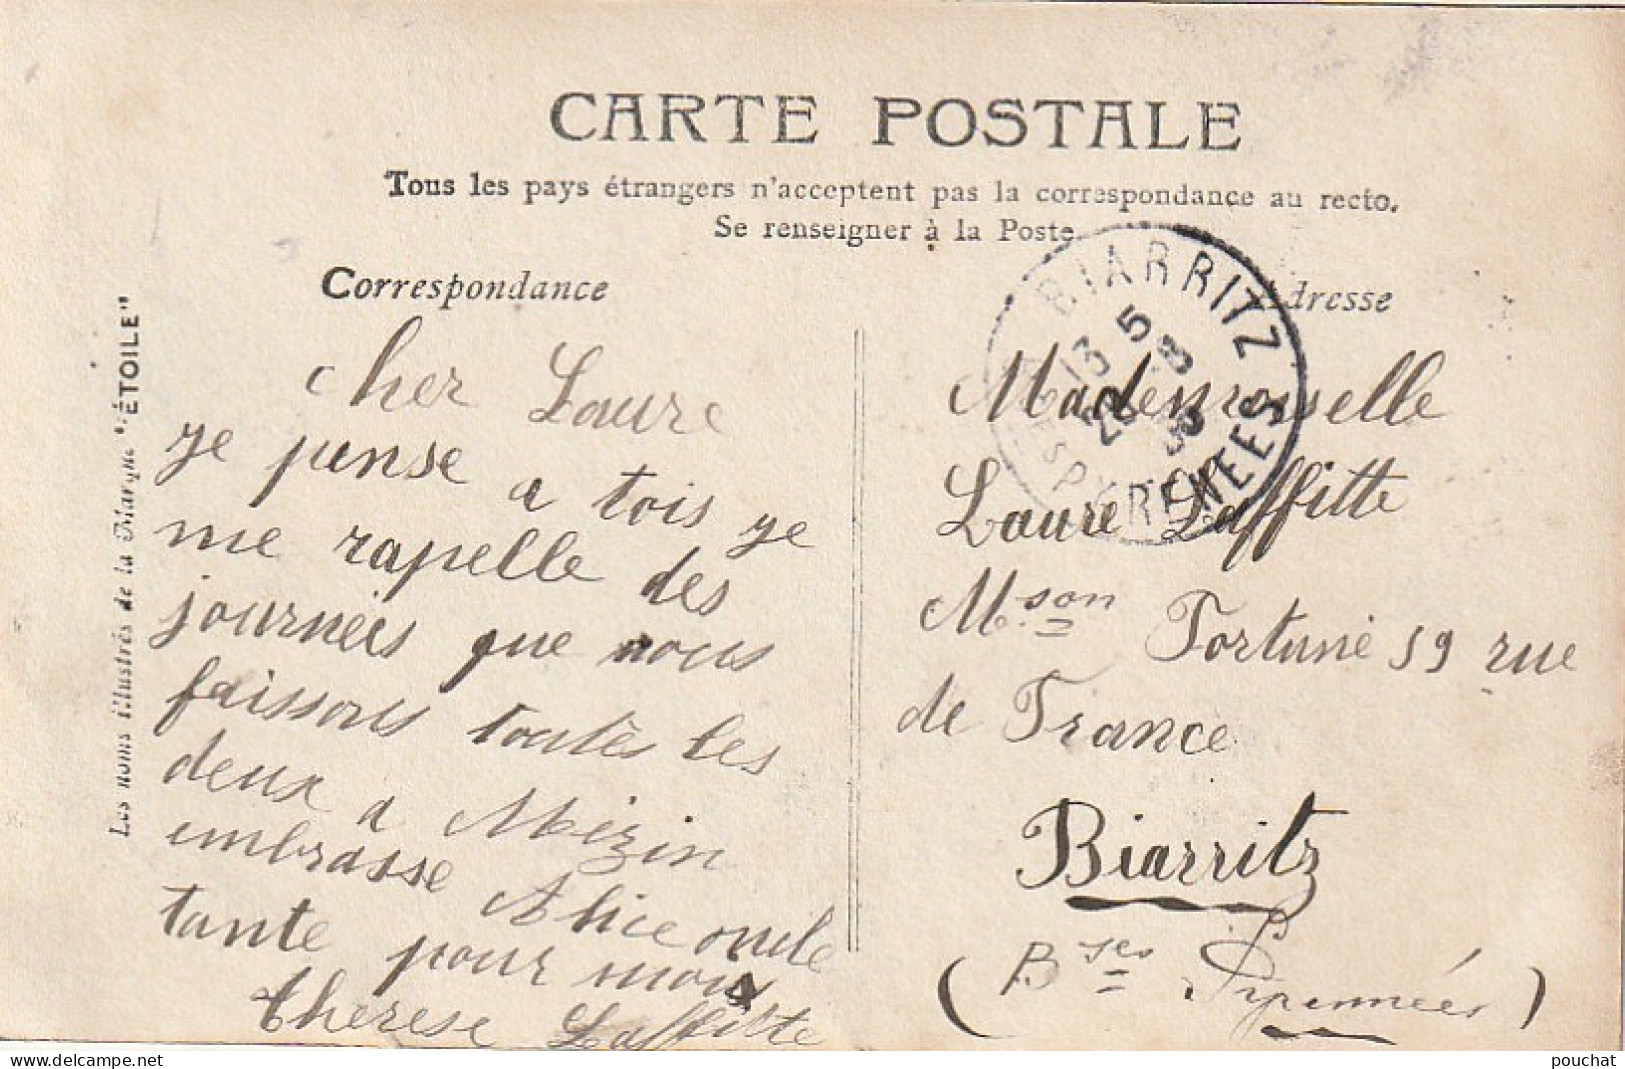 CARTE POSTALE
Tous les pays étrangers n'acceptent pas la correspondance au recto.
Se renseigner à la Poste.
Correspondance
cher Laure
je pense a tois je
me rapelle des
journeés que nous
faissons toutès les
deux a Mézin
embrasse Alice oncle
tante pour mois
therese Laffitte
Les noms illustrés de la Marque "ÉTOILE"
Adresse
Mademoiselle
Laure Laffitte
Mson Fortuné 59 rue
de France
Biarritz
(Bses Pyrennées)
BIARRITZ
13 5
22 -8
PYRENEES
www.delcampe.net
pouchat